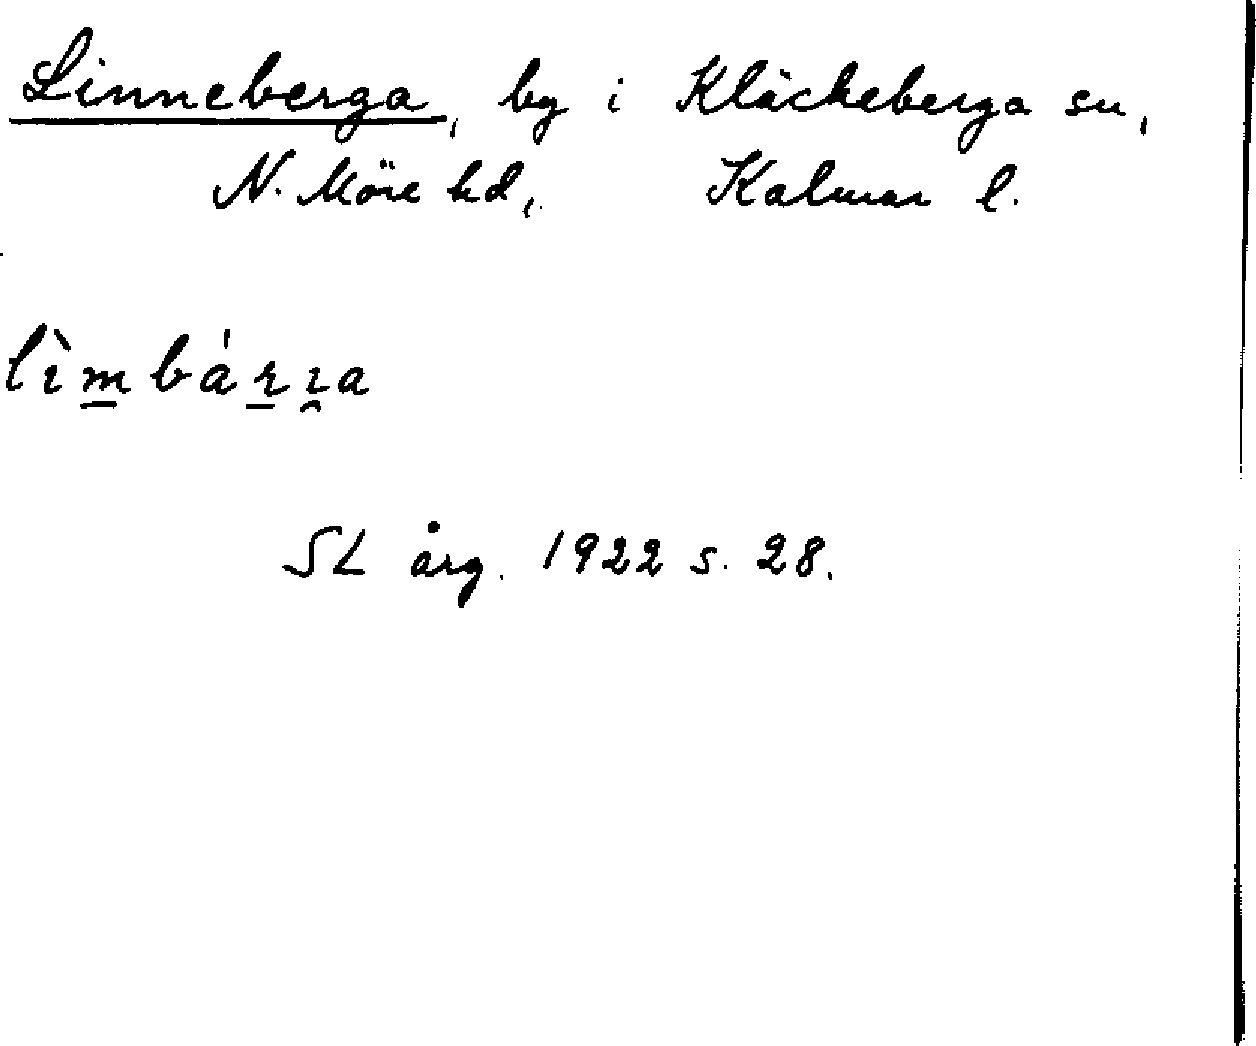 Linneberga, by i Kläckeberga sn,
N. Möre hd, Kalmar l.
lìm̱báṟı̯a
SL årg. 1922 s. 28.